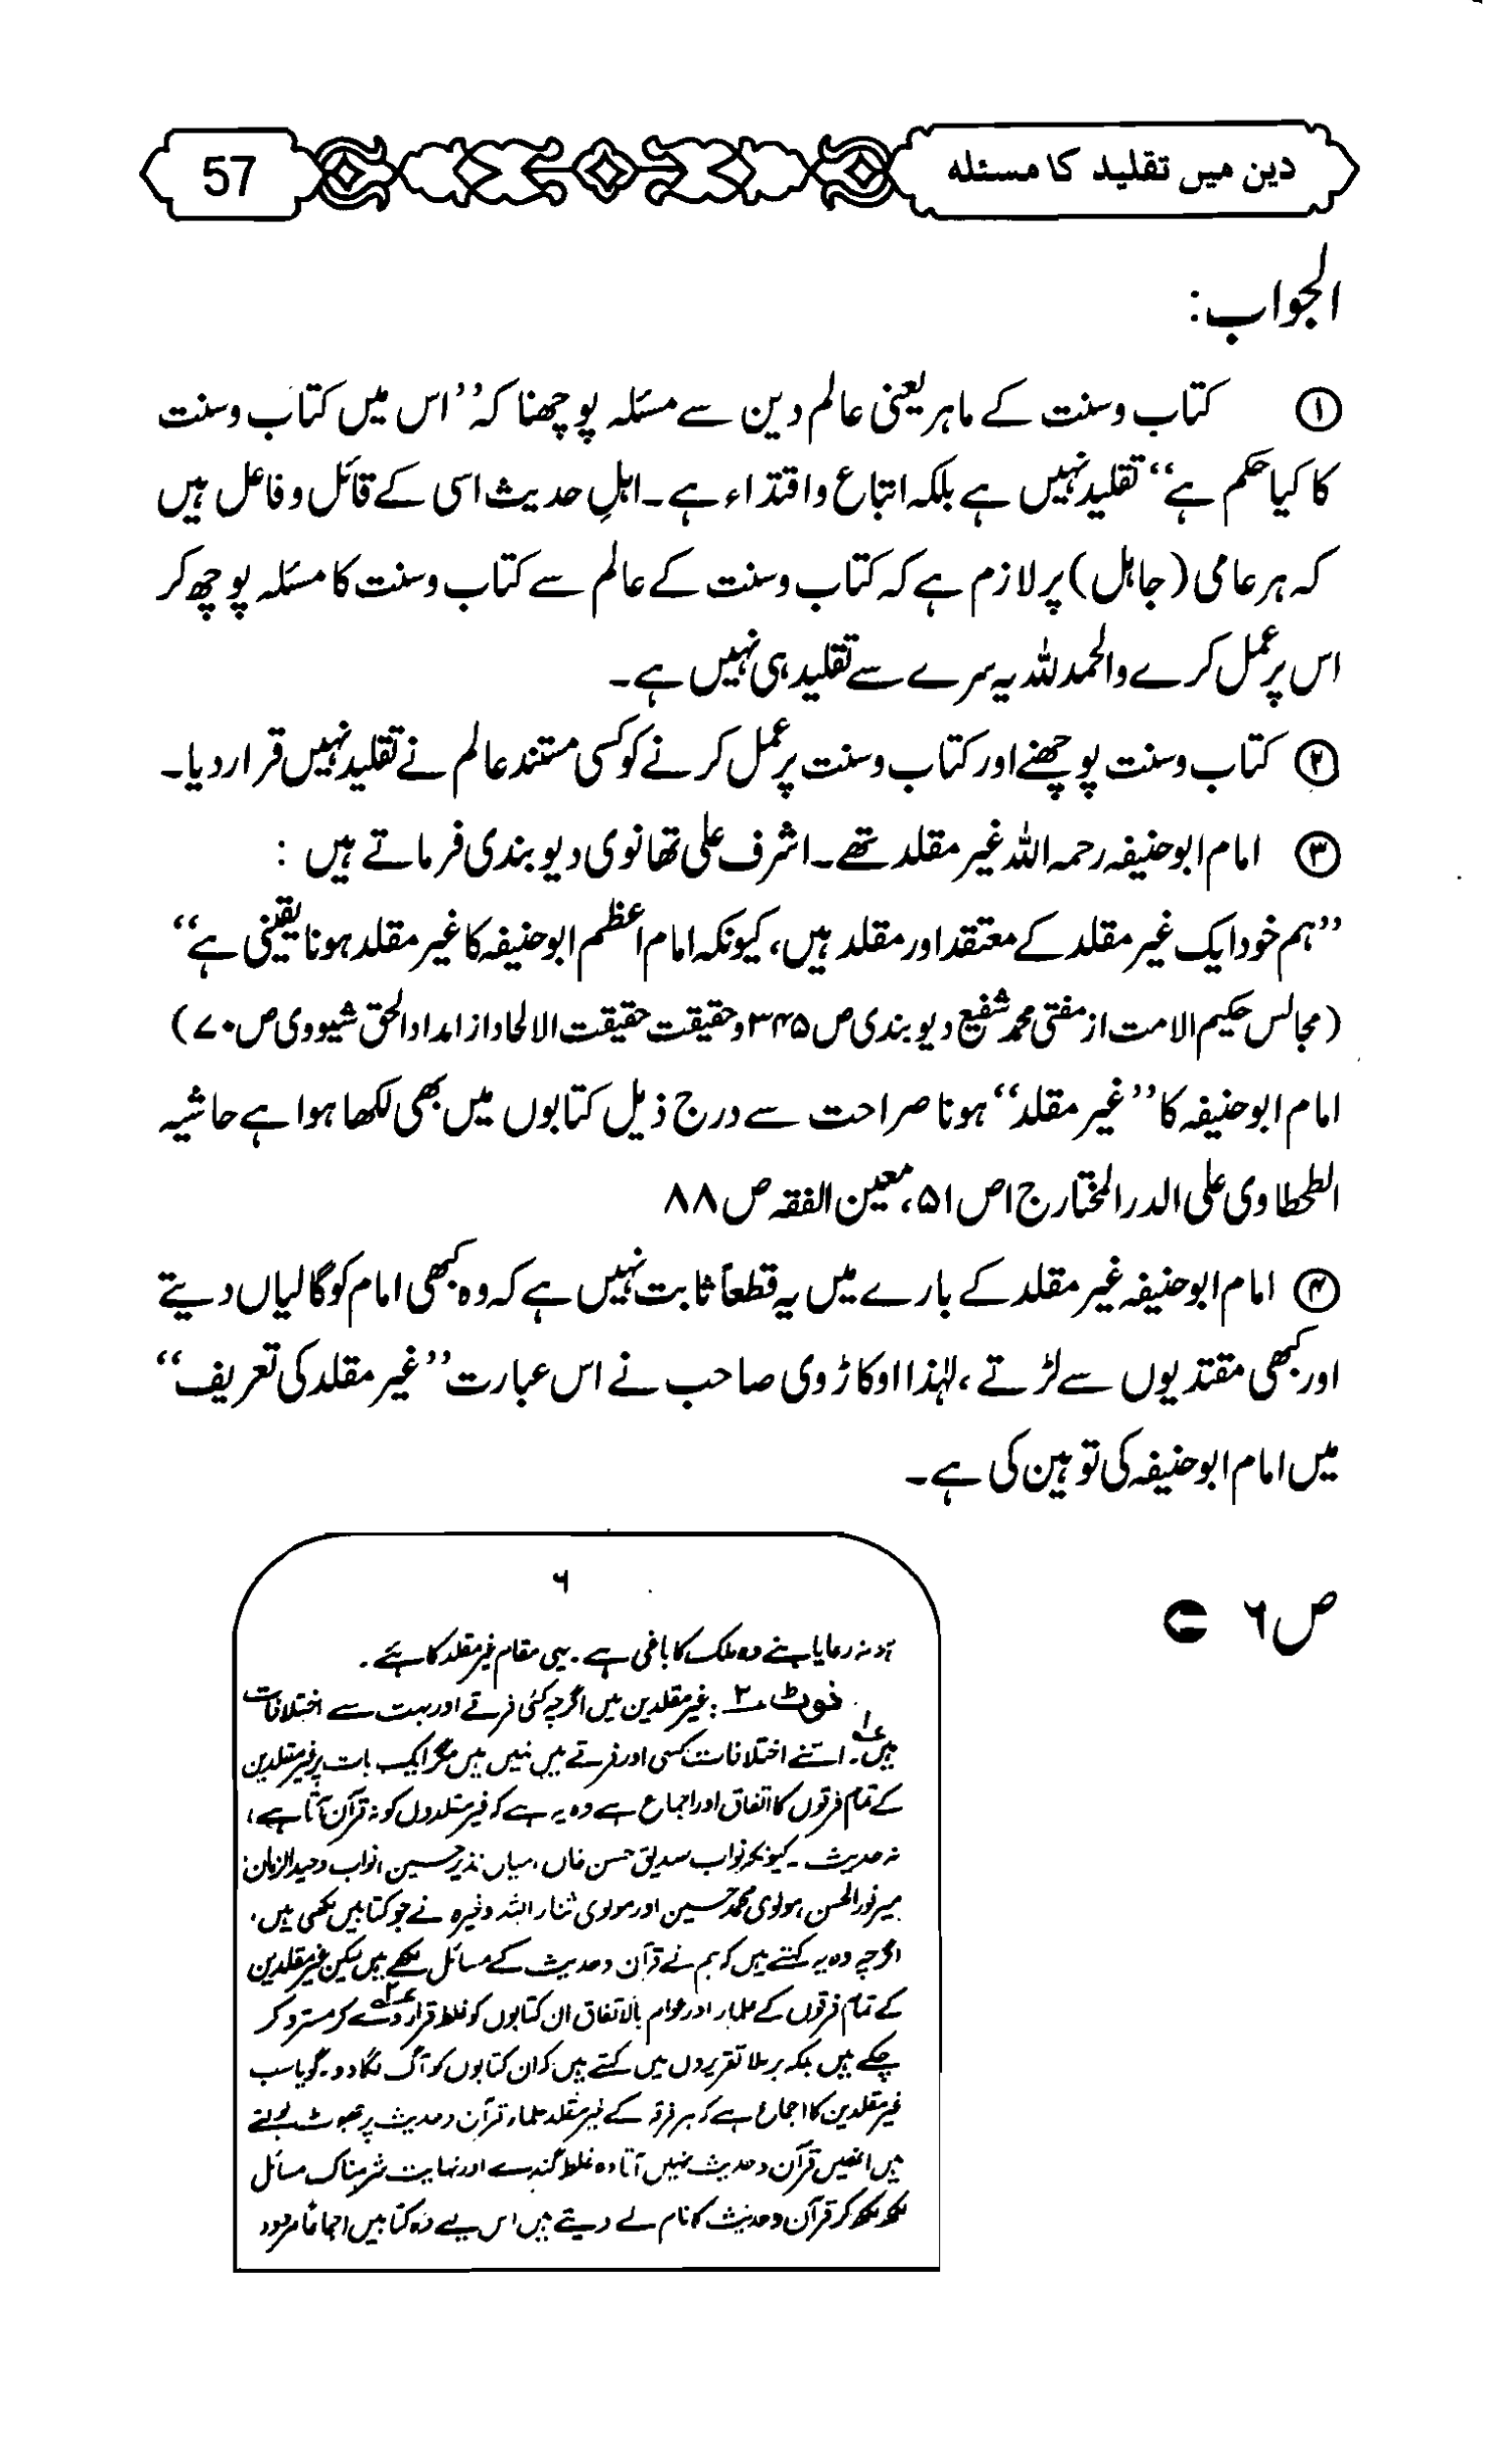 دین میں تقلید کا مسئلہ
57
الجواب:
① کتاب وسنت کے ماہر یعنی عالم دین سے مسئلہ پوچھنا کہ ’’اس میں کتاب وسنت
کا کیا حکم ہے‘‘ تقلید نہیں ہے بلکہ اتباع واقتداء ہے۔ اہلِ حدیث اسی کے قائل وفاعل ہیں
کہ ہر عامی (جاہل) پر لازم ہے کہ کتاب وسنت کے عالم سے کتاب وسنت کا مسئلہ پوچھ کر
اس پر عمل کرے والحمد للہ یہ سرے سے تقلید ہی نہیں ہے۔
② کتاب وسنت پوچھنے اور کتاب وسنت پر عمل کرنے کو کسی مستند عالم نے تقلید نہیں قرار دیا۔
③ امام ابوحنیفہ رحمہ اللہ غیر مقلد تھے۔ اشرف علی تھانوی دیوبندی فرماتے ہیں :
’’ہم خود ایک غیر مقلد کے معتقد اور مقلد ہیں، کیونکہ امام اعظم ابوحنیفہ کا غیر مقلد ہونا یقینی ہے‘‘
(مجالس حکیم الامت از مفتی محمد شفیع دیوبندی ص ۳۴۵ وحقیقت حقیقت الالحاد از امداد الحق شیووی ص ۷۰)
امام ابوحنیفہ کا ’’غیر مقلد‘‘ ہونا صراحت سے درج ذیل کتابوں میں بھی لکھا ہوا ہے حاشیہ
الطحطاوی علی الدر المختار ج ۱ ص ۵۱، معین الفقہ ص ۸۸
④ امام ابوحنیفہ غیر مقلد کے بارے میں یہ قطعاً ثابت نہیں ہے کہ وہ کبھی امام کو گالیاں دیتے
اور کبھی مقتدیوں سے لڑتے، لہٰذا اوکاڑوی صاحب نے اس عبارت ’’غیر مقلد کی تعریف‘‘
میں امام ابوحنیفہ کی توہین کی ہے۔
ص ۶
۶
نہ رعایا بنے وہ ملک کا باغی ہے۔ یہی مقام غیر مقلد کا ہے۔
نوٹ ۲: غیر مقلدین میں اگرچہ کئی فرقے اور بہت سے اختلافات
ہیں۔ ؏۱ اتنے اختلافات کسی اور فرقے میں نہیں ہیں مگر ایک بات پر غیر مقلدین
کے تمام فرقوں کا اتفاق اور اجماع ہے وہ یہ ہے کہ غیر مقلدوں کو نہ قرآن آتا ہے،
نہ حدیث۔ کیونکہ نواب صدیق حسن خاں، میاں نذیر حسین، نواب وحید الزمان،
میر نور الحسن، مولوی محمد حسین اور مولوی ثناء اللہ وغیرہ نے جو کتابیں لکھی ہیں،
اگرچہ وہ یہ کہتے ہیں کہ ہم نے قرآن وحدیث کے مسائل لکھے ہیں لیکن غیر مقلدین
کے تمام فرقوں کے علماء اور عوام بالاتفاق ان کتابوں کو غلط قرار ؏۲ دے کر مسترد کر
چکے ہیں بلکہ برملا تقریروں میں کہتے ہیں کہ ان کتابوں کو آگ لگا دو۔ گویا سب
غیر مقلدین کا اجماع ہے کہ ہر فرقہ کے غیر مقلد علماء قرآن وحدیث پر جھوٹ بولتے
ہیں انھیں قرآن وحدیث نہیں آتا وہ غلط گندے اور نہایت شرمناک مسائل
لکھ لکھ کر قرآن وحدیث کا نام لے دیتے ہیں اس لیے وہ کتابیں اجماعاً مردود